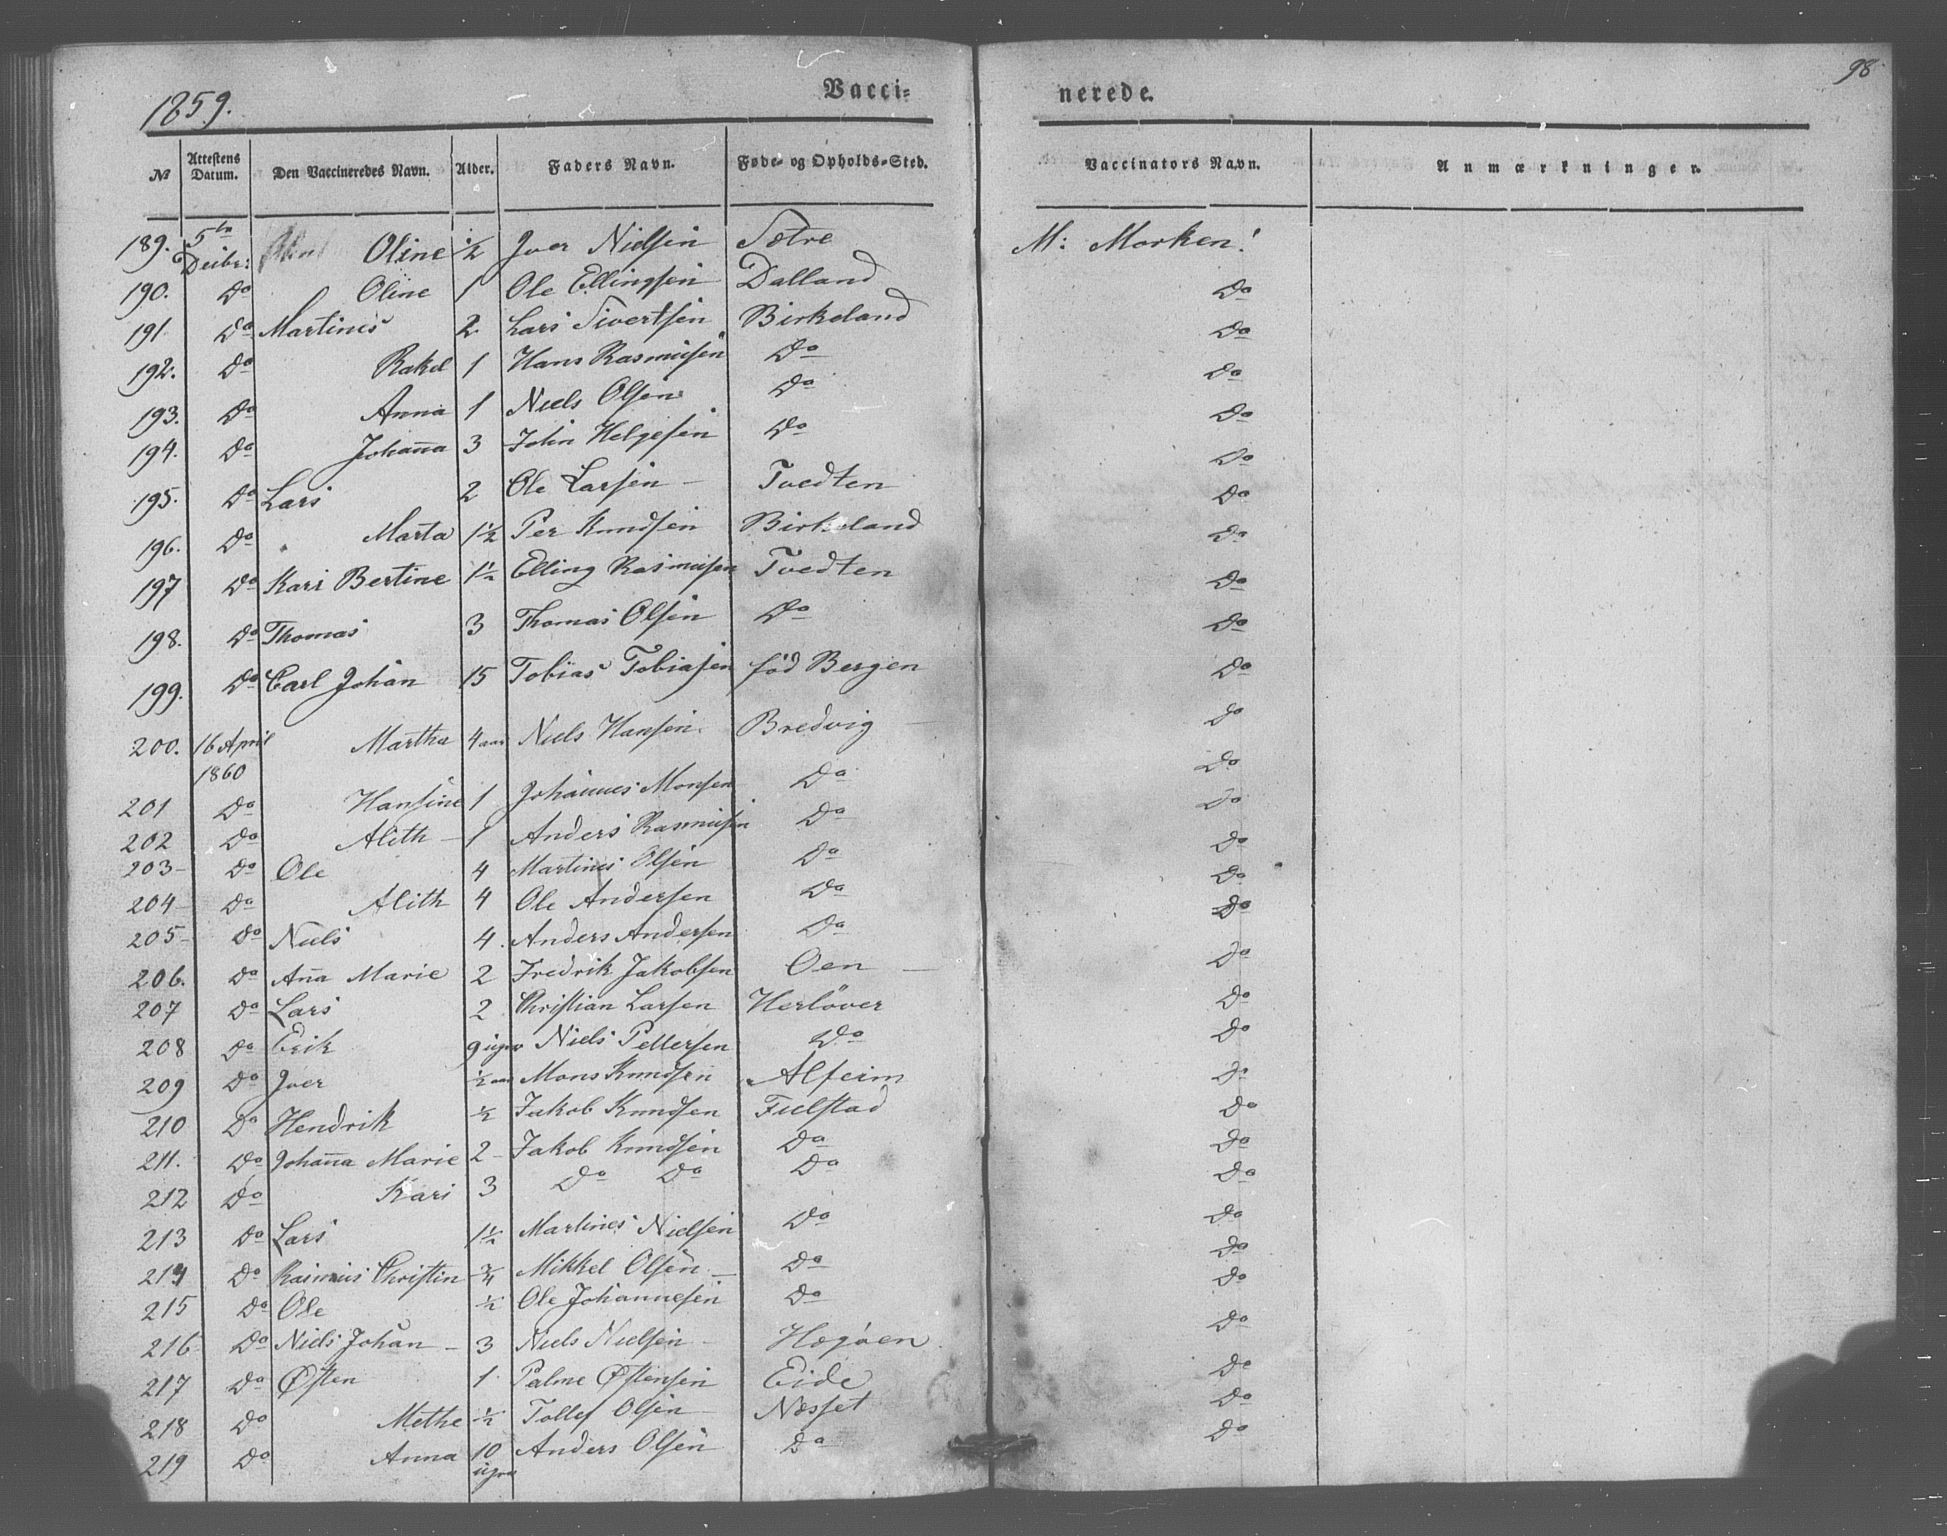 98
1859. Vacci- nerede.
№ Attestens Datum. Den Vaccineredes Navn. Alder. Faders Navn. Føde- og Opholds-Sted. Vaccinators Navn. Anmærkninger.
189. 5te Decbr: Oline ½ Iver Nielsen Sætre M: Morken!
190. Do Oline 1 Ole Ellingsen Dalland Do
191. Do Martines 2 Lars Sivertsen Birkeland Do
192. Do Rakel 1 Hans Rasmusen Do Do
193. Do Anna 1 Niels Olsen Do Do
194. Do Johan̄a 3 John Helgesen Do Do
195. Do Lars 2 Ole Larsen - Tvedten Do
196. Do Marta 1½ Per Knudsen Birkeland Do
197 Do Kari Bertine 1½ Elling Rasmusen Tvedten Do
198. Do Thomas 3 Thomas Olsen Do Do
199. Do Carl Johan 15 Tobias Tobiasen fød Bergen Do
200. 16 April 1860 Martha 4 aar Niels Hansen Bredvig - Do
201 Do Hansine 1 Johannes Monsen Do Do
202 Do Alith - 1 Anders Rasmusen Do Do
203- Do Ole 4 Martines Olsen Do Do
204- Do Alith 4 Ole Andersen Do Do
205- Do Niels 4. Anders Andersen Do Do
206. Do An̄a Marie 2 Fredrik Jakobsen Oen - Do
207 Do Lars 2 Christian Larsen Herløver Do
208 Do Erik 9 uger Niels Pettersen Do Do
209 Do Iver ½ aar Mons Knudsen Alfeim Do
210 Do Hendrik ½ Jakob Knudsen Fielstad Do
211. Do Johan̄a Marie 2- Jakob Knudsen Do Do
212 Do Kari 3 Do Do Do Do
213 Do Lars 1½ Martines Nielsen Do Do
214 Do Rasmus Christin ¾ Mikkel Olsen - Do Do
215 Do Ole ½ Ole Johannesen Do Do
216 Do Niels Johan - 3 Niels Nielsen - Hegøen Do
217 Do Østen 1 Palme Østensen Eide Do
218 Do Methe ½ Tollef Olsen Næsset Do
219 Do Anna 10 uger Anders Olsen Do Do